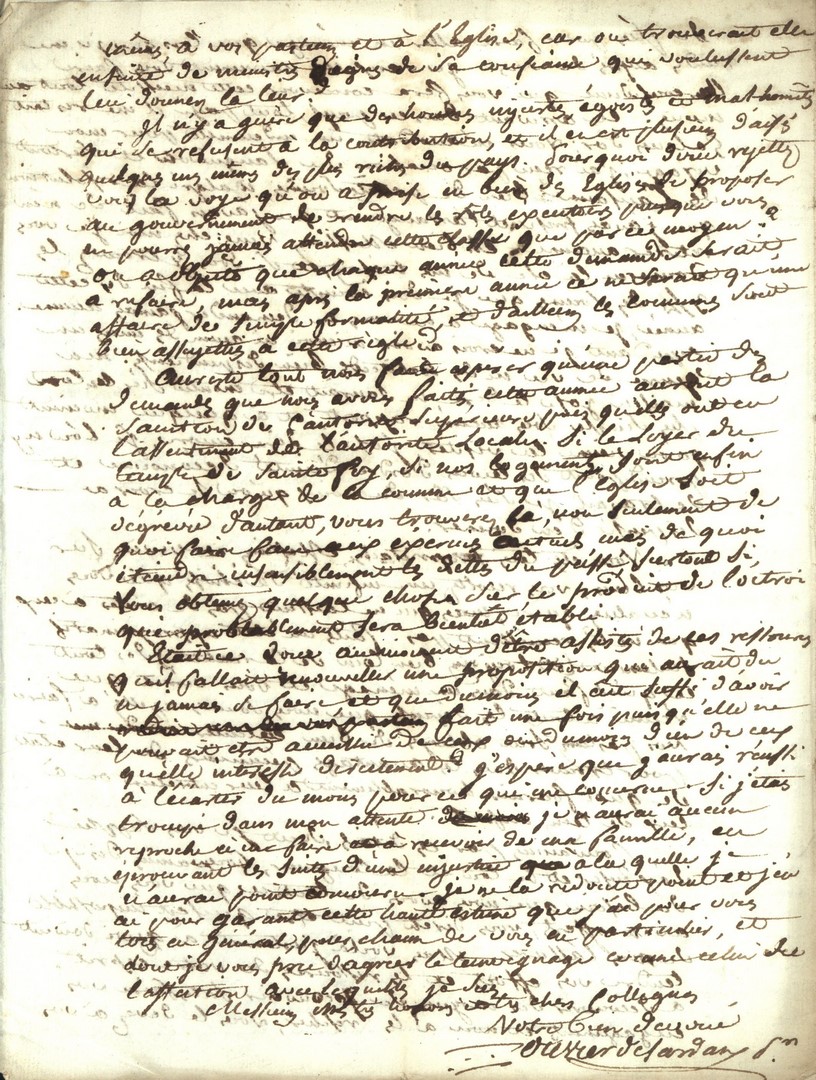 à vos pasteurs et à l'Eglise, car où trouverait elle
ensuite de ministres dignes de sa confiance qui voulussent
leur donner la leur.
Il n'y a guère que des hommes injustes, égoistes et malhonnêtes
qui se refusent à la contribution, et il en est plusieurs d'aisés
quelques uns mêmes des plus riches du pays. Pourquoi donc rejettez
vous la voye qu'on a prise en bien des Eglises de proposer
au gouvernement de rendre les rôles executoires puisque vous
ne pourrez jamais atteindre cette classe que par ce moyen ?
on a objecté que chaque année cette demande serait
à refaire, mais après la première année ce ne serait qu'une
affaire de simple formalité, et d'ailleurs les communes sont
bien assujetties à cette règle là
Au reste tout nous fait espérer qu'une partie des
demandes que nous avons faites cette année auront la
sanction de l'autorité supérieure puis qu'elles ont eu
l'assentiment de l'autorité locale. Si le loyer du
temple de Sainte foy, si nos logements sont enfin
à la charge de la commune et que l'Eglise soit
dégrevée d'autant, vous trouverez là, non seulement de
quoi faire face aux exercices actuels mais de quoi
éteindre insensiblement les dettes du passé surtout si
vous obtenez quelque chose sur le produit de l'octroi
qui probablement sera bientôt établi.
Etait ce donc au moment d'être assistés de ces ressources
qu'il fallait renouveller une proposition qui aurait du
ne jamais se faire et que du moins il eut suffi d'avoir
fait une fois puis qu'elle ne
pouvait être accueillie de ceux ou du moins d'un de ceux
qu'elle intéresse directement ? J'espère que j'aurai réussi
à l'écarter du moins pour ce qui me concerne. Si j'étais
trompé dans mon attente je n'aurai aucun
reproche à me faire à recevoir de ma famille, en
éprouvant les suites d'une injustice à la quelle je
n'aurai point concouru. Je ne la redoute point et j'en
ai pour garant cette haute estime que j'ai pour vous
tous en général, pour chacun de vous en particulier, et
dont je vous prie d'agréer le témoignage comme celui de
l'affection avec lesquels je suis
Messieurs très honorés et très chers Collègues
Votre bien dévoué